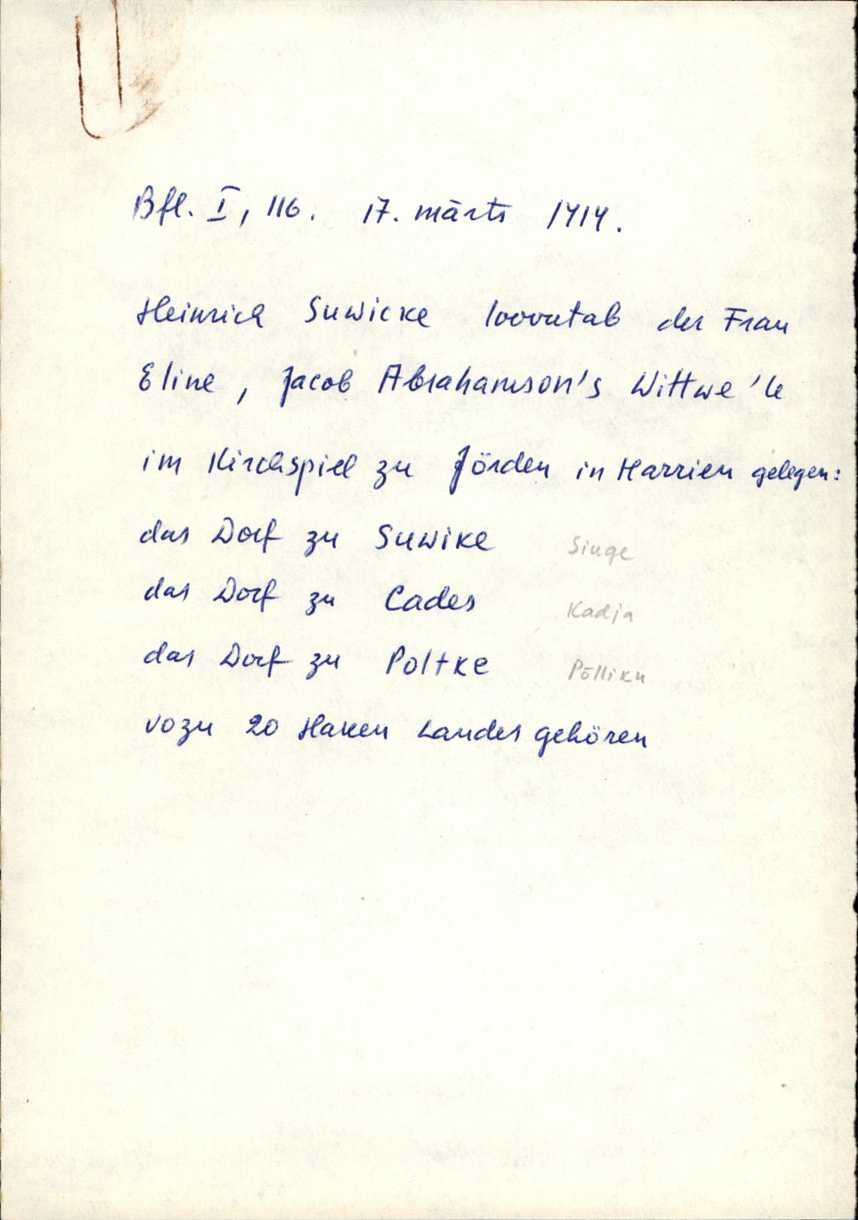 Bfl. I, 116. 17. märts 1414.
Heinrich Suwicke loovutab der Frau
Eline, Jacob Abrahamson's Wittwe'le
im Kirchspiel zu Jörden in Harrien gelegen:
das Dorf zu Suwike Siuge
das Dorf zu Cades Kadja
das Dorf zu Poltke Põlliku
vozu 20 Haken Landes gehören